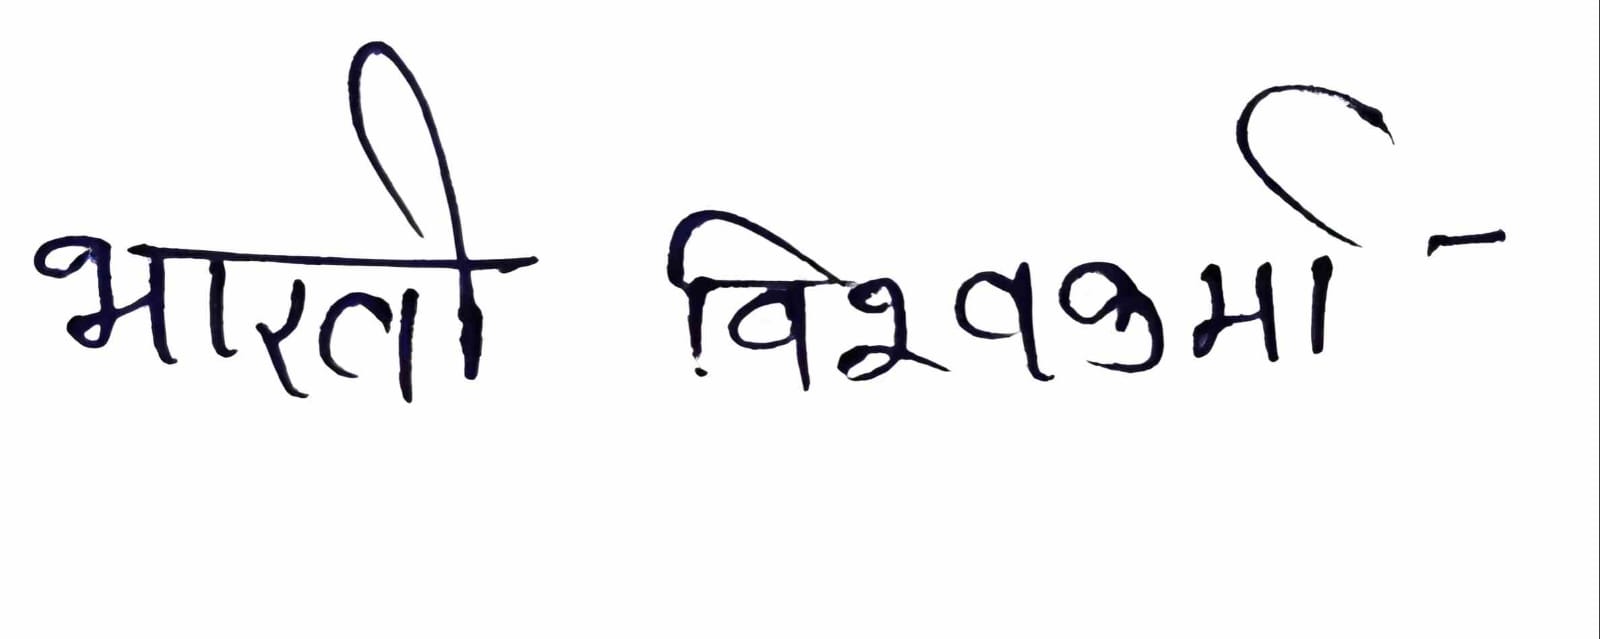 भारती विश्वकर्मा -